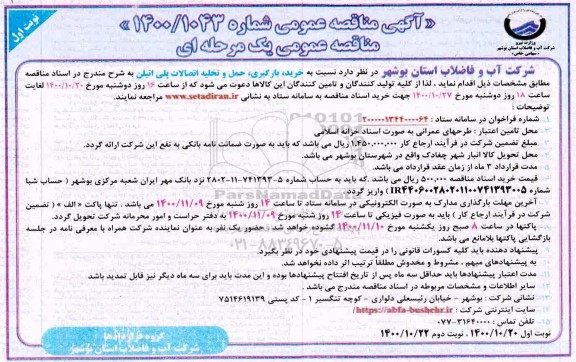 نوبت اول
« آگهی مناقصه عمومی شماره ۱۴۰۰/۱۰۴۳ »
مناقصه عمومی یک مرحله ای
وزارت نیرو
شرکت آب و فاضلاب استان بوشهر
(سهامی خاص)
شرکت آب و فاضلاب استان بوشهر در نظر دارد نسبت به خرید، بارگیری، حمل و تخلیه اتصالات پلی اتیلن به شرح مندرج در اسناد مناقصه
مطابق مشخصات ذیل اقدام نماید . لذا از کلیه تولید کنندگان و تامین کنندگان این کالاها دعوت می شود که از ساعت ۱۶ روز دوشنبه مورخ ۱۴۰۰/۱۰/۲۰ لغایت
ساعت ۱۸ روز دوشنبه مورخ ۱۴۰۰/۱۰/۲۷ جهت خرید اسناد مناقصه به سامانه ستاد به نشانی www.setadiran.ir مراجعه نمایند.
توضیحات :
۱. شماره فراخوان در سامانه ستاد :
۲. محل تامین اعتبار : طرحهای عمرانی به صورت اسناد خزانه اسلامی
۳. مبلغ تضمین شرکت در فرآیند ارجاع کار ۱,۴۵۰,۰۰۰,۰۰۰ ریال می باشد که باید به صورت ضمانت نامه بانکی به نفع این شرکت ارائه گردد.
۴. محل تحویل کالا انبار شهر چغادک واقع در شهرستان بوشهر می باشد.
۵. مدت قرارداد ۳ ماه از زمان عقد قرارداد می باشد.
۶. قیمت خرید اسناد مناقصه ۵۰۰,۰۰۰ ریال می باشد .که باید به حساب شماره ۵-۷۴۱۳۹۳-۱۱-۲۸۰۲ نزد بانک مهر ایران شعبه مرکزی بوشهر ( حساب شبا
شماره ) واریز گردد.
۷. آخرین مهلت بارگذاری مدارک به صورت الکترونیکی در سامانه ستاد تا ساعت ۱۴ روز شنبه مورخ ۱۴۰۰/۱۱/۰۹ می باشد . تنها پاکت « الف » ( تضمین
شرکت در فرآیند ارجاع کار ) باید به صورت فیزیکی تا ساعت ۱۴ روز شنبه مورخ ۱۴۰۰/۱۱/۰۹ به دفتر حراست و امور محرمانه شرکت تحویل گردد.
۸. پاکتها در ساعت ۸ صبح روز یکشنبه مورخ ۱۴۰۰/۱۱/۱۰ گشوده خواهد شد . حضور یک نفر به عنوان نماینده شرکت همراه با معرفی نامه در جلسه
بازگشایی پاکتها بلامانع می باشد.
۹. پیشنهاد دهنده باید کلیه کسورات قانونی را در قیمت پیشنهادی خود در نظر بگیرد.
۱۰. به پیشنهادهای مبهم ، مشروط و مخدوش مطلقاً ترتیب اثر داده نخواهد شد.
۱۱. مدت اعتبار پیشنهادها باید حداقل سه ماه پس از تاریخ افتتاح پیشنهادها بوده و این مدت باید برای سه ماه دیگر نیز قابل تمدید باشد
۱۲. سایر اطلاعات و مشخصات مربوطه در اسناد مناقصه مندرج می باشد .
۱۳. نشانی شرکت : بوشهر - خیابان رئیسعلی دلواری - کوچه تنگسیر ۱ - کد پستی ۷۵۱۴۶۱۹۱۳۹
۱۴. سایت اینترنتی شرکت : https://abfa-bushehr.ir/
۱۵. تلفن تماس : ۳۱۶۴۰۰۰۰-۰۷۷
نوبت اول ۱۴۰۰/۱۰/۲۰ ، نوبت دوم ۱۴۰۰/۱۰/۲۲
گروه قراردادها
شرکت آب و فاضلاب استان بوشهر
ParsNamadData
۰۲۱-۸۸۳۴۹۶۷۰-۵